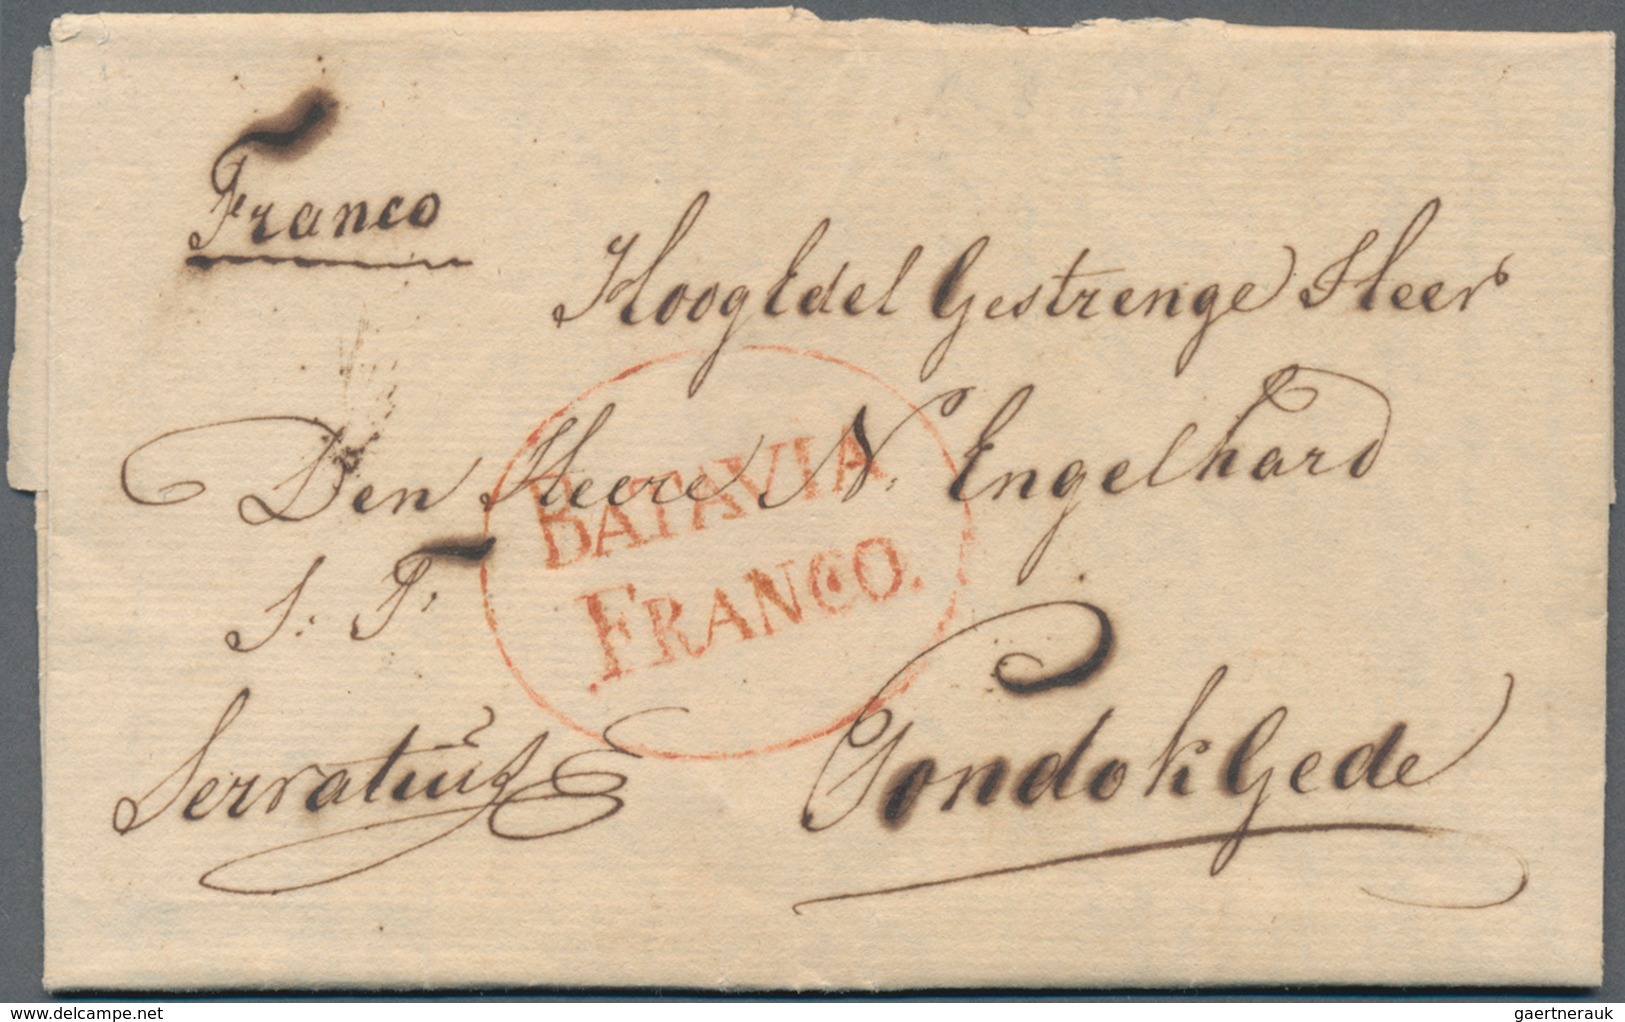 Franco
HoogEdel Gestrenge Heer
Den Heere N. Engelhard
BATAVIA
FRANCO.
S: T:
Pondok Gede
delcampe.net
gaertnerauk